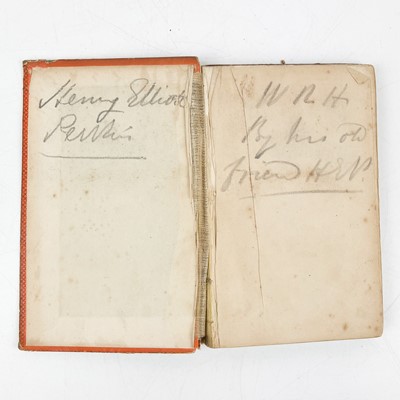 Henry Elliott
Perkins
W R H
By his old
friend HEP